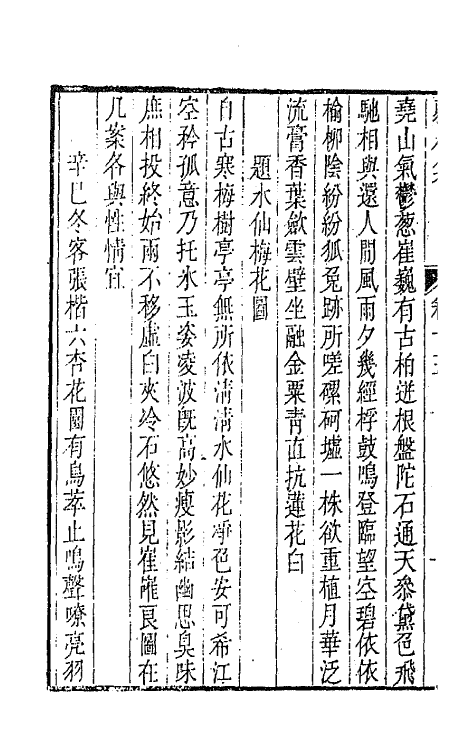 堯山氣鬱葱崔巍有古柏迸根盤陀石通天黛色飛
馳相與還人間風雨夕幾經桴鼓鳴登臨望空碧依依
榆柳陰紛紛狐兔跡所嗟磥砢墟一株欲重植月華泛
流膏香葉歛雲壁坐融金粟青直抗蓮花白
題水仙梅花圖
自古寒梅樹亭亭無所依清清水仙花凈色安可希江
空矜孤意乃托氷玉姿凌波旣高妙瘦影結幽思臭味
庶相投終始兩不移虛白夾冷石悠然見崔嵬良圖在
几案各與性情宜
辛巳冬客張楷六杏花園有鳥萃止鳴聲嘹亮羽